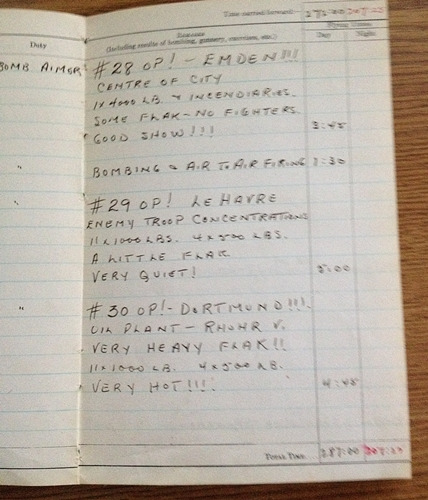 Time carried forward:—
Duty
REMARKS
(Including results of bombing, gunnery, exercises, etc.)
Flying Times
Day Night
BOMB AIMER #28 OP! - EMDEN!!!
CENTRE OF CITY
1x4000 LB. & INCENDIARIES.
SOME FLAK - NO FIGHTERS.
GOOD SHOW!!! 3:45
" BOMBING & AIR TO AIR FIRING 1:30
" #29 OP! LE HAVRE
ENEMY TROOP CONCENTRATIONS
11x1000 LBS. 4x500 LBS.
A LITTLE FLAK
VERY QUIET!
" #30 OP! - DORTMUND!!!.
OIL PLANT - RHUHR V.
VERY HEAVY FLAK!!
11x1000 LB. 4x500 LB.
VERY HOT!!!! 4:45
TOTAL TIME 287:00